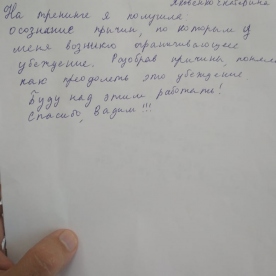 Екатерина
На тренинге я получила
осознание причин, по которым у
меня возникло ограничивающее
убеждение. Разобрав причины, понимаю
как преодолеть это убеждение
Буду над этим работать!
Спасибо, Вадим!!!